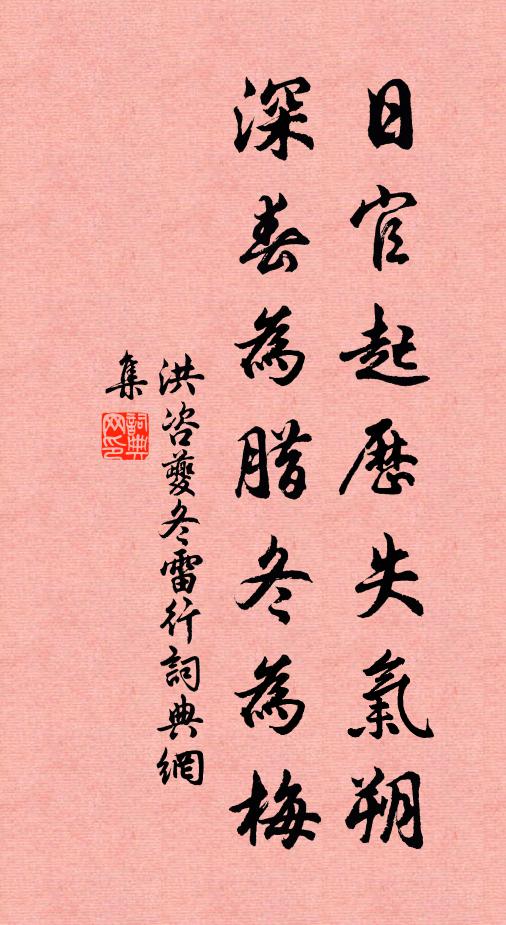 日官起歷失氣朔
深春為腊冬為梅
洪咨夔冬雷行詞典網
集
詞典
网印